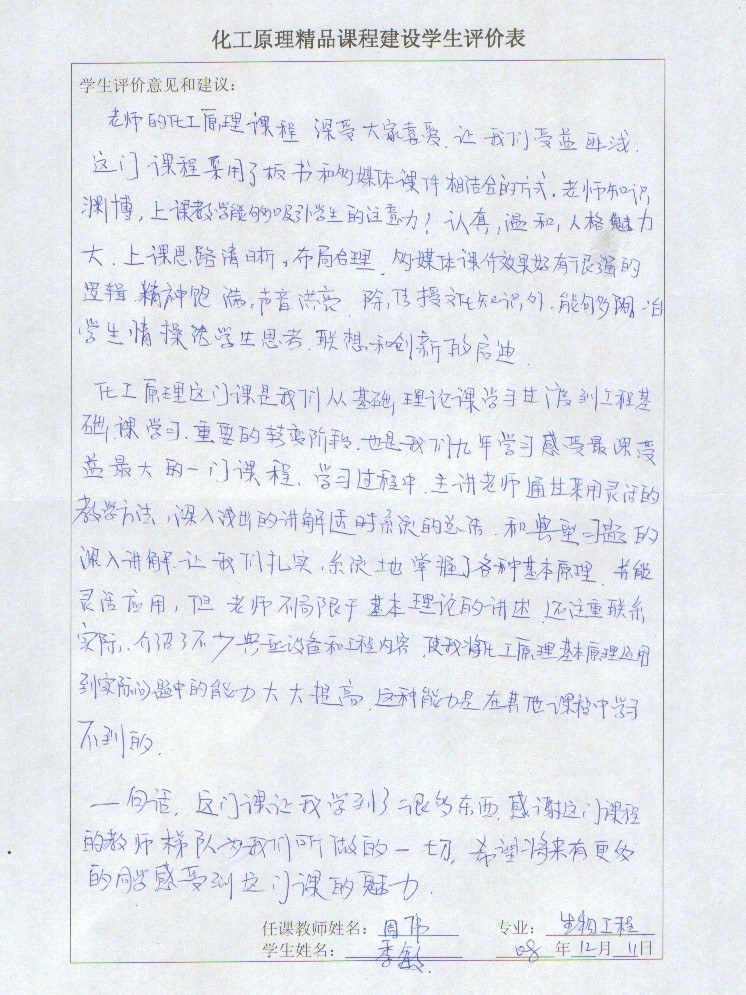 化工原理精品课程建设学生评价表
学生评价意见和建议：
老师的化工原理课程 深受大家喜爱.让我们受益匪浅.
这门课程采用了板书和多媒体课件相结合的方式.老师知识
渊博,上课教学能够吸引学生的注意力!认真,温和,人格魅力
大.上课思路清晰,布局合理.多媒体课件效果好有很强的
逻辑.精神饱满,声音洪亮.除,传授文化知识,外.能够陶冶
学生情操.给学生思考.联想和创新的启迪.
化工原理这门课是我们从基础理论课学习过渡到工程基
础课学习.重要的转变阶段.也是我们几年学习感受最深受
益最大的一门课程.学习过程中.主讲老师通过采用灵活的
教学方法,深入浅出的讲解适时系统的总结.和典型习题的
深入讲解.让我们扎实.系统地掌握了各种基本原理.并能
灵活应用,但老师不局限于基本理论的讲述.还注重联系
实际,.介绍了不少典型设备和工程内容.使我将化工原理基本原理运用
到实际问题中的能力大大提高.这种能力是在其他课程中学习
不到的.
一句话.这门课让我学到了很多东西.感谢这门课程
的教师梯队为我们所做的一切,希望将来有更多
的同学感受到这门课的魅力.
任课教师姓名：周伟 专业：生物工程
学生姓名：李敏. 08年12月11日